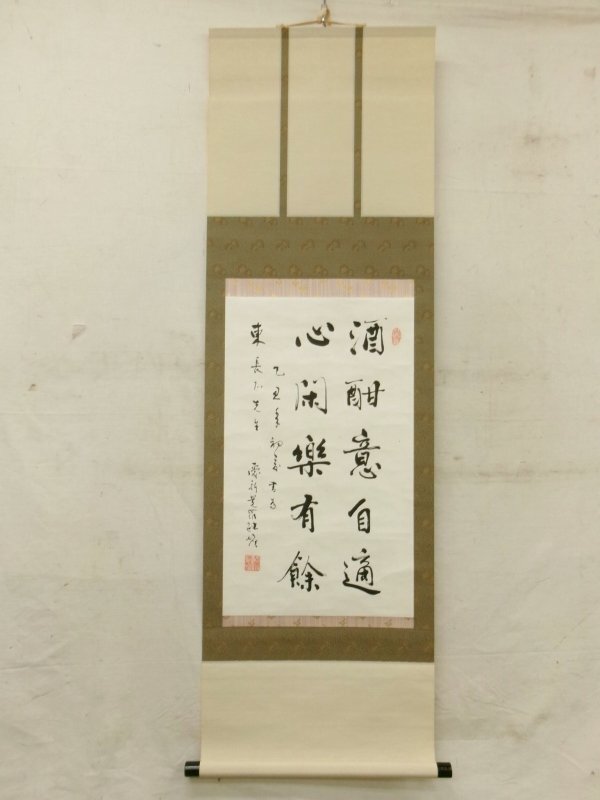 酒酣意自適
心閑樂有餘
乙丑年初夏書為
東長 先生